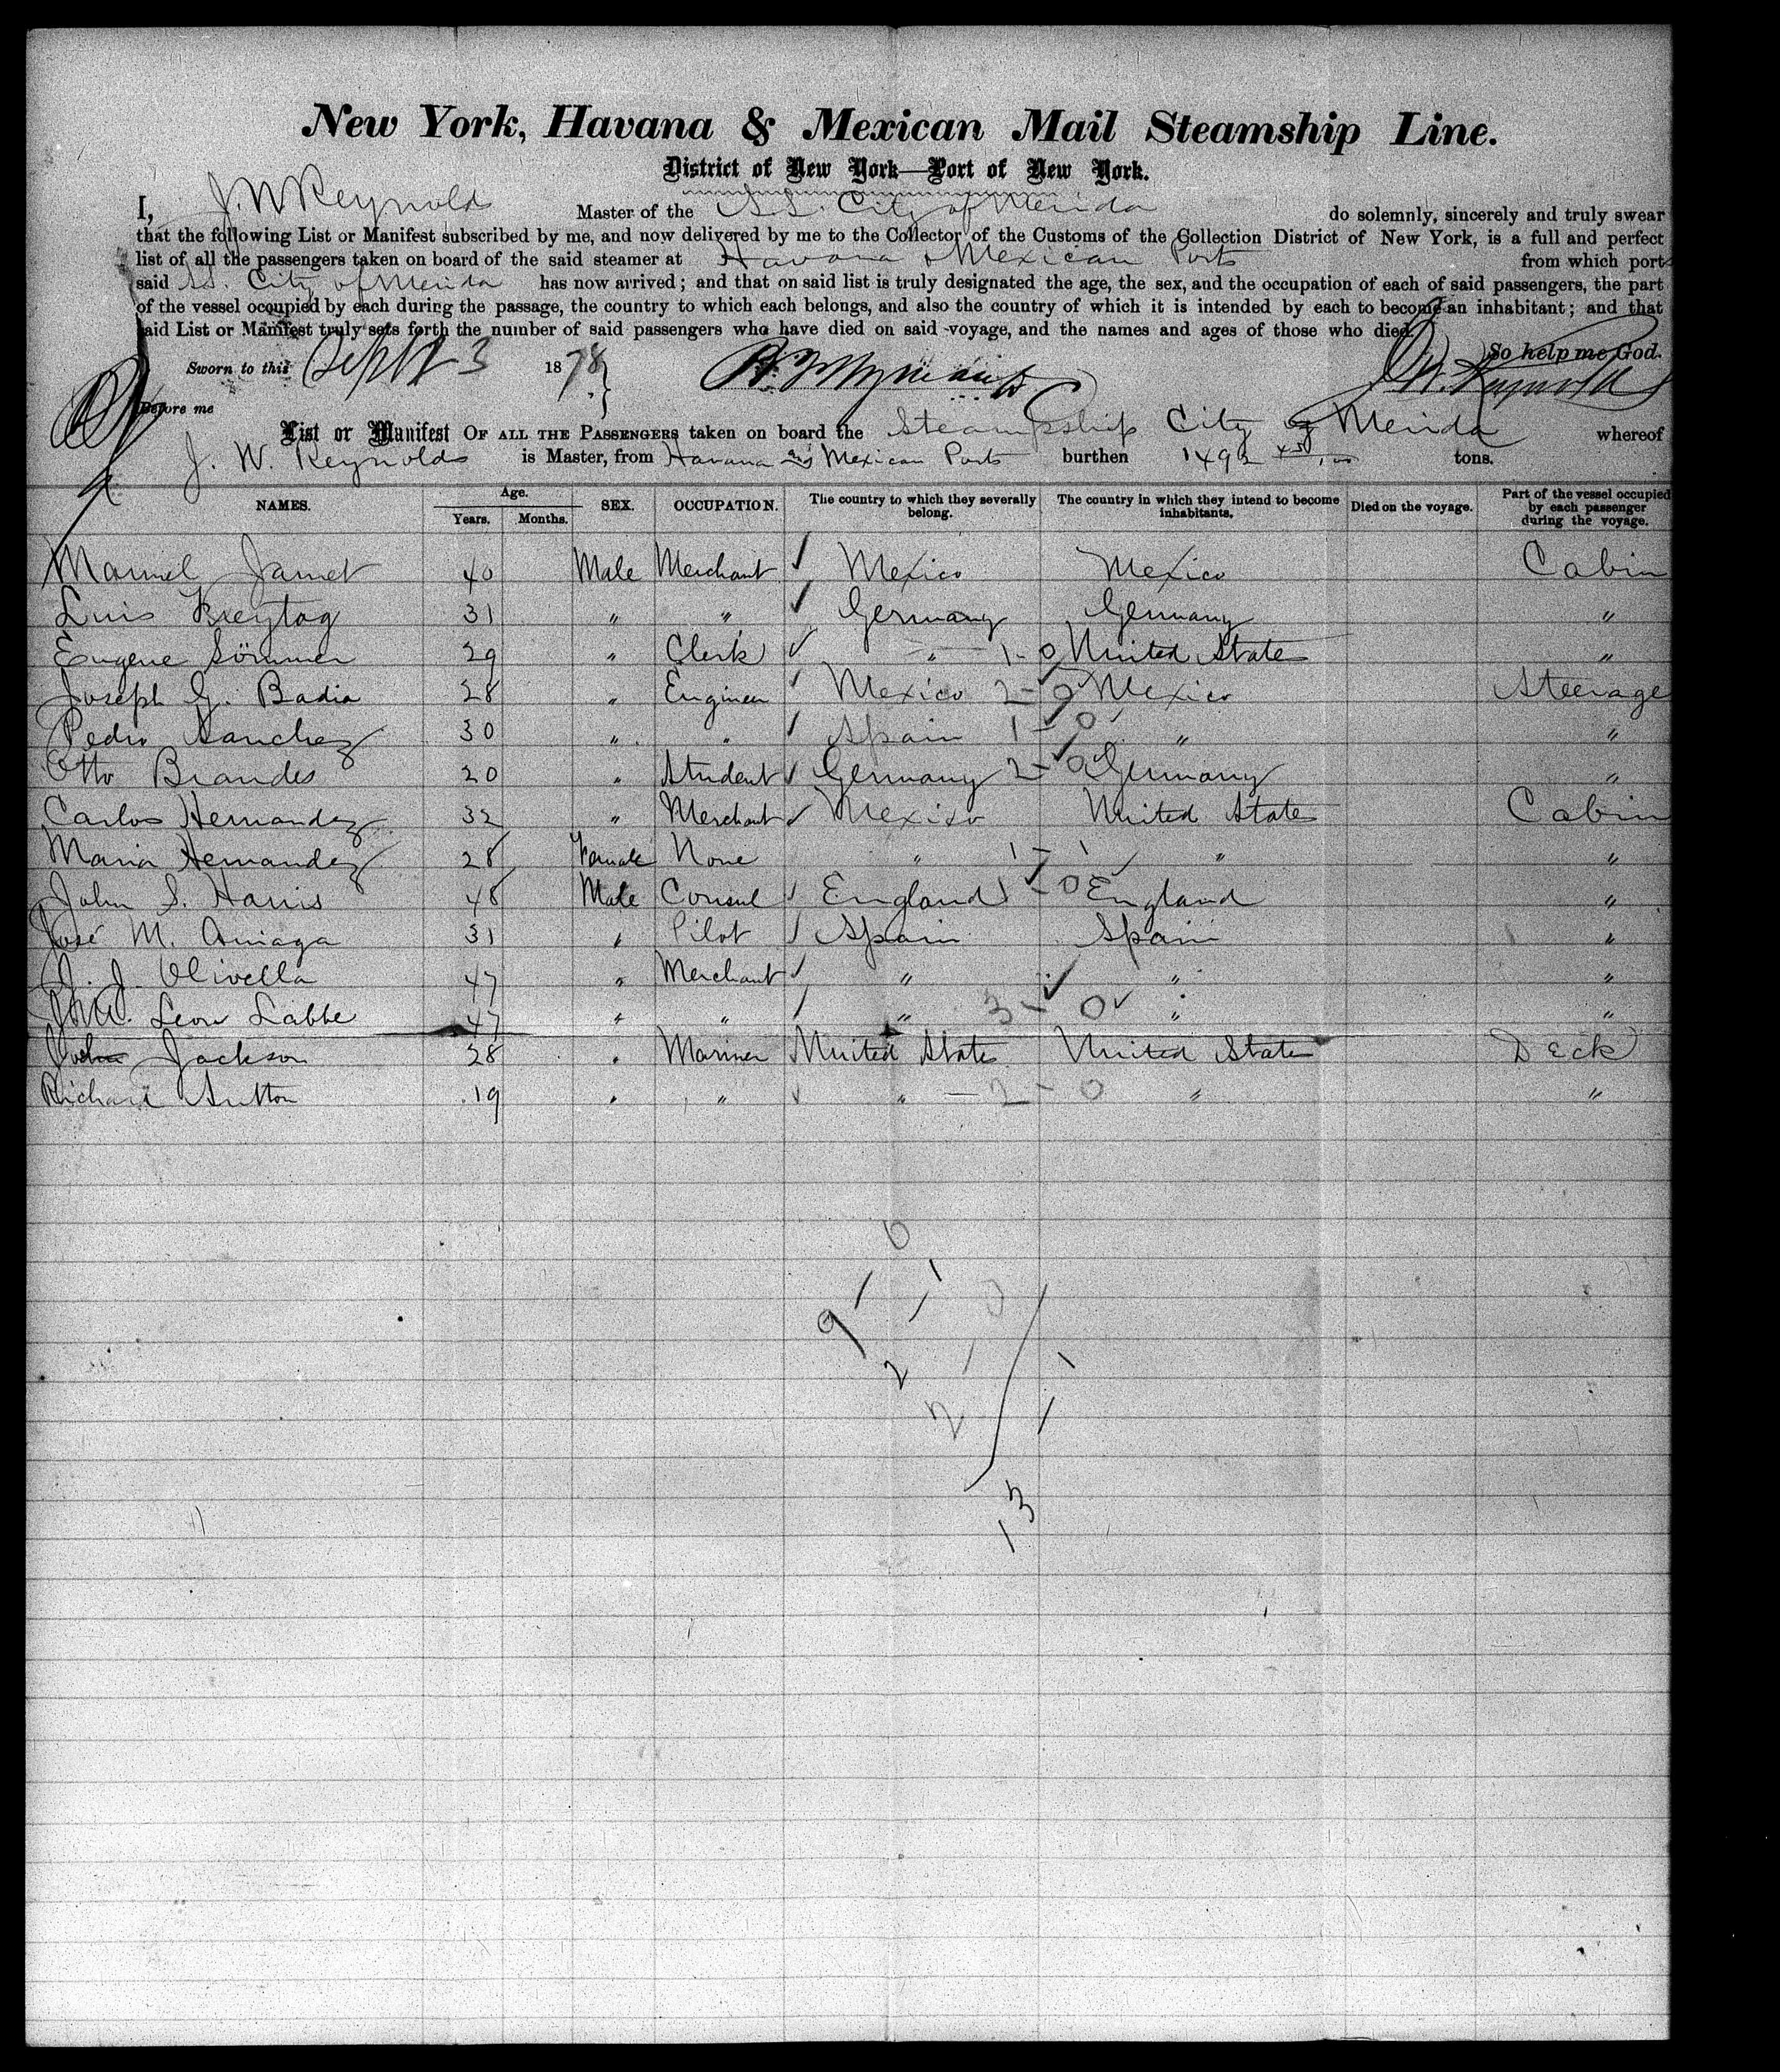 New York, Havana & Mexican Mail Steamship Line.
District of New York—Port of New York.
I, J. W. Reynolds Master of the S.S. City of Merida do solemnly, sincerely and truly swear
that the following List or Manifest subscribed by me, and now delivered by me to the Collector of the Customs of the Collection District of New York, is a full and perfect
list of all the passengers taken on board of the said steamer at Havana & Mexican Ports from which port
said SS. City of Merida has now arrived; and that on said list is truly designated the age, the sex, and the occupation of each of said passengers, the part
of the vessel occupied by each during the passage, the country to which each belongs, and also the country of which it is intended by each to become an inhabitant; and that
said List or Manifest truly sets forth the number of said passengers who have died on said voyage, and the names and ages of those who died.
So help me God.
Sworn to this Sept 3 1878 J. W. Reynolds
Before me
List or Manifest OF ALL THE PASSENGERS taken on board the Steamship City of Merida whereof
J. W. Reynolds is Master, from Havana and Mexican Ports burthen 1492 tons.
NAMES. Age. Years. Months. SEX. OCCUPATION. The country to which they severally belong. The country in which they intend to become inhabitants. Died on the voyage. Part of the vessel occupied by each passenger during the voyage.
Manuel Jamet 40 Male Merchant Mexico Mexico Cabin
Luis Freytag 31 " " Germany Germany "
Eugene Sömmer 29 " Clerk " 1-0 United State "
Joseph G. Badia 28 " Engineer Mexico 2-0 Mexico Steerage
Pedro Sanchez 30 " " Spain 1-0 " "
Otto Brandes 20 " Student Germany 2-0 Germany "
Carlos Hernandez 32 " Merchant Mexico United State Cabin
Maria Hernandez 28 Female None " 1-1 " "
John S. Harris 48 Male Consul England 1-0 England "
José M. Aniaga 31 " Pilot Spain Spain "
J. J. Olivella 47 " Merchant " " "
Leon Labbe 47 " " " 3-0 " "
John Jackson 28 " Mariner United State United State Deck
Richard Sutton 19 " " " 2-0 " "
0
9 1 1
2
2
1 1
13